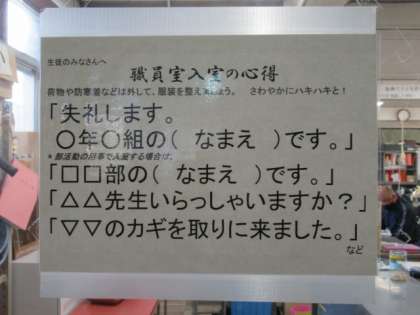 生徒のみなさんへ
職員室入室の心得
荷物や防寒着などは外して、服装を整えましょう。 さわやかにハキハキと!
「失礼します。
○年○組の( なまえ )です。」
*部活動の用事で入室する場合は、
「□□部の( なまえ )です。」
「△△先生いらっしゃいますか?」
「▽▽のカギを取りに来ました。」
など